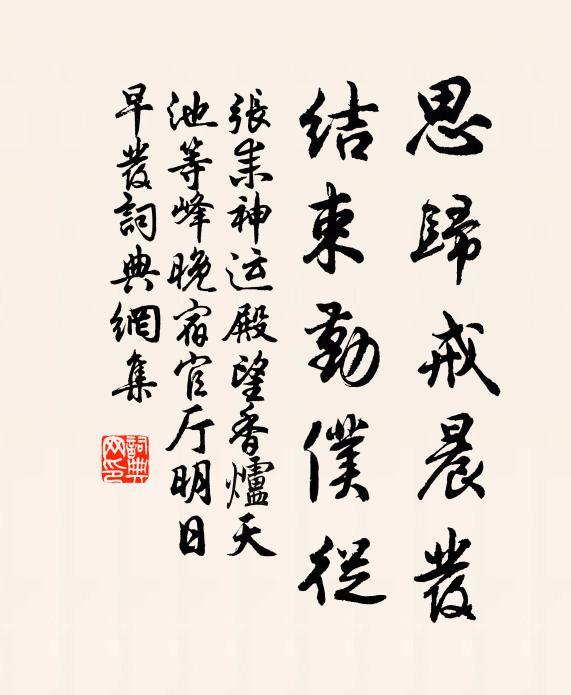 思歸戒晨發
結束勤僕從
張耒神运殿望香爐天
池等峰晚宿官厅明日
早發詞典網集
詞典
网印